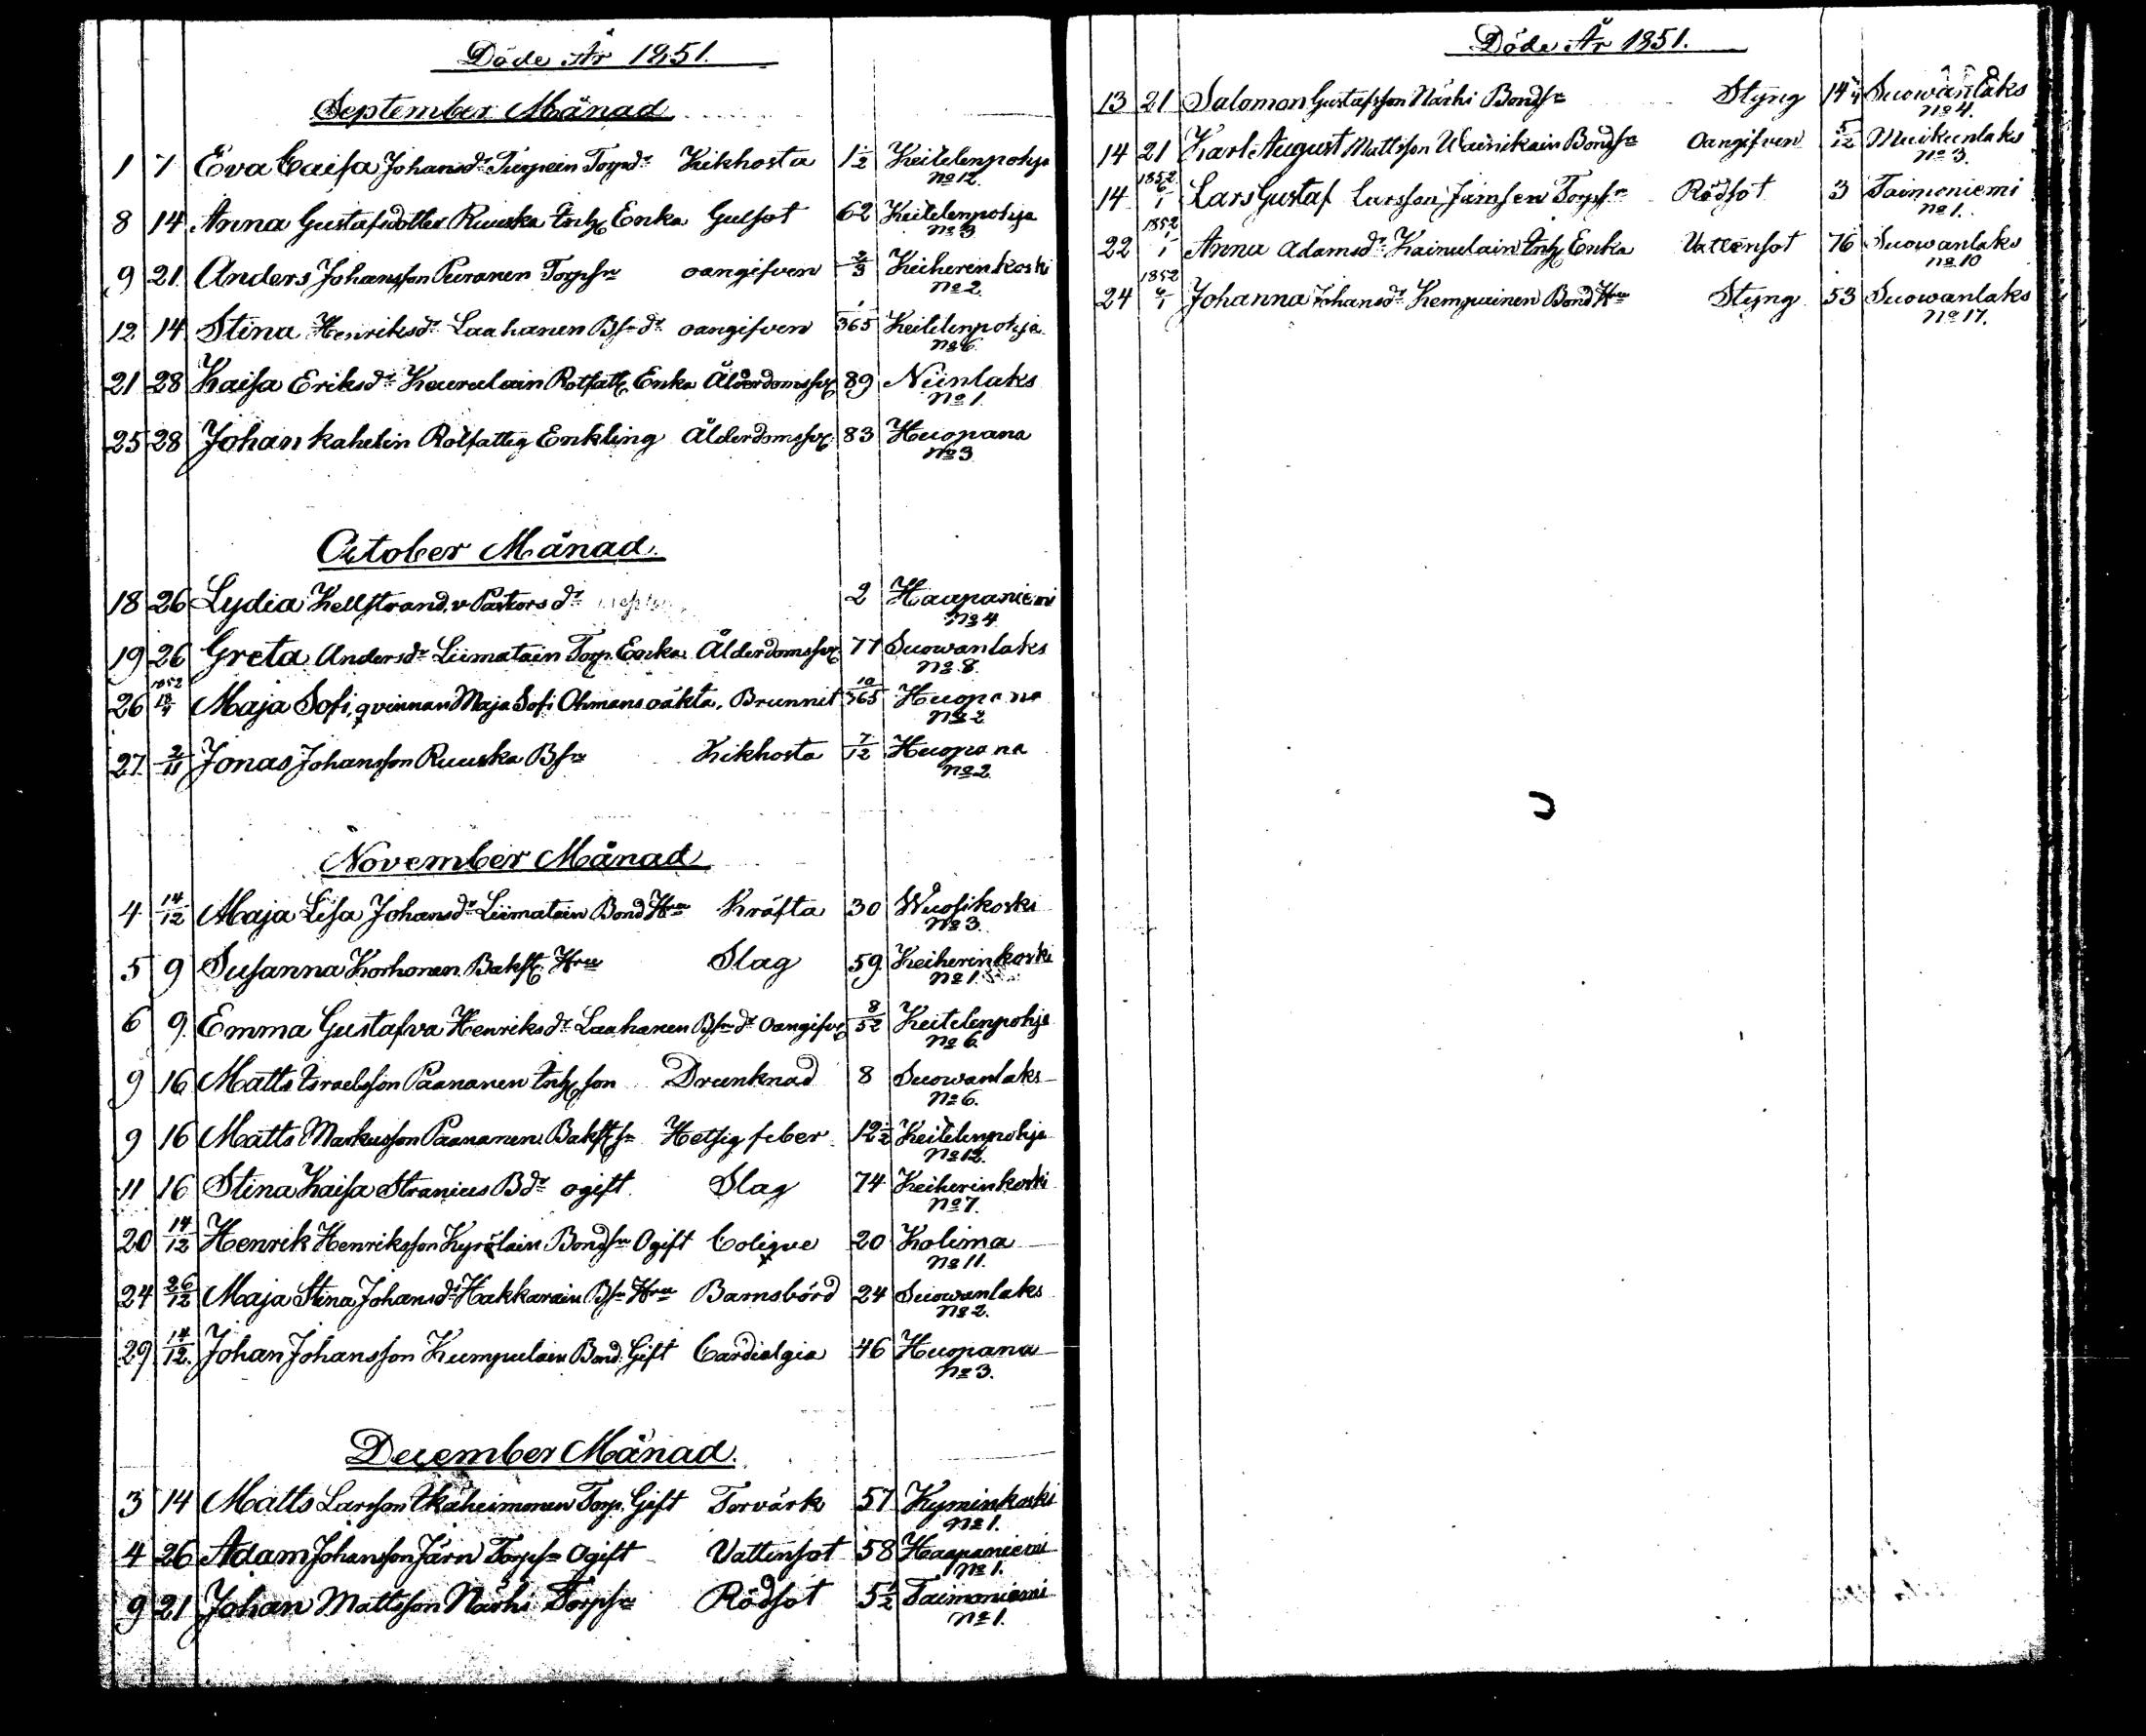 Döde År 1851.
September Månad
1 7 Eva Caisa Johansdr Turpein Torpdr Kikhosta 1 1/2 Keitelenpohja
No 12.
8 14 Anna Gustafsdotter Ruuska Inh Enka Gulsot 62 Keitelenpohja
No 3
9 21. Anders Johansson Puranen Torpsn oangifven 2/3 Keiherinkoski
No 2.
12 14 Stina Henriksdr Laahanen Bsn dr oangifven 1/365 Keitelenpohja
No 6.
21 28 Kaisa Eriksdr Kaurulain Rotfatt Enka Ålderdomssv 89 Niinlaks
No 1
25 28 Johan Kahelin Rotfattig Enkling Ålderdomssv 83 Huopana
No 3
October Månad.
18 26 Lydia Hellstrand, v Pastors dr 2 Haapaniemi
No 4
19 26 Greta Andersdr Liimatain Torp. Enka Ålderdomssv 77 Suowanlaks
No 8.
26 1852 Maja Sofi, qvinnan Maja Sofi Ohmans oäkta, Brunnit 10/365 Huopana
No 2
27. 2/11 Jonas Johansson Ruuska Bsn Kikhosta 7/12 Huopana
No 2.
November Månad
4 14/12 Maja Lisa Johansdr Liimatain Bond Hru Kräfta 30 Wuosikoski
No 3.
5 9 Susanna Korhonen Bakst Hru Slag 59. Keiherinkoski
No 1.
6 9. Emma Gustafva Henriksdr Laahanen Bsn dr oangifv 8/52 Keitelenpohja
No 6.
9 16 Matts Israelsson Paananen Inh son Drunknad 8 Suowanlaks
No 6.
9 16 Matts Markusson Paananen Bakst sn Hetsig feber 12 1/2 Keitelenpohja
No 12.
11 16 Stina Kaisa Stranius Bdr ogift. Slag 74 Keiherinkoski
No 7.
20 14/12 Henrik Henriksson Kyrölain Bondsn Ogift Colique 20 Kolima
No 11.
24 26/12 Maja Stina Johansdr Hakkarain Bsn Hru Barnsbörd 24 Suowanlaks
No 2.
29 14/12. Johan Johansson Kumpulain Bond. Gift Cardialgia 46 Huopana
No 3.
December Månad.
3 14 Matts Larsson Ikäheimonen Torp. Gift Torvärk 57 Kyminkoski
No 1.
4 26 Adam Johansson Järn Torpsn Ogift Vattensot 58 Haapaniemi
No 1.
9 21 Johan Mattsson Närhi Torpsn Rödsot 5 1/2 Taimoniemi
No 1.
Döde År 1851.
13 21 Salomon Gustafsson Närhi Bondsn Styng 14 Suowanlaks
No 4.
14 21 Karl August Mattsson Wainikain Bondsn oangifven 5/12 Muikunlaks
No 3.
14 1852 6/1 Lars Gustaf Larsson Jämsen Torpsn Rödsot 3 Taimoniemi
No 1.
22 1852 1/1 Anna Adamsdr Kainulain Inh Enka Vattensot 76 Suowanlaks
No 10
24 1852 6/1 Johanna Johansdr Kempainen Bond Hru Styng 53 Suowanlaks
No 17.